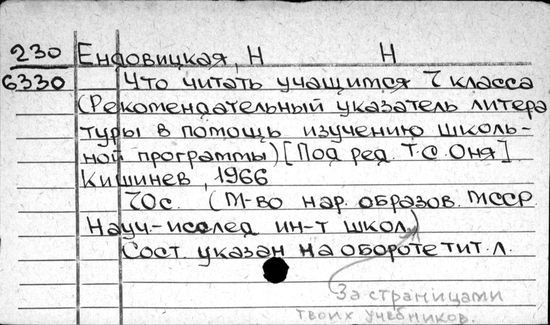 230 Ендовицкая, Н Н
6330 Что читать учащимся 7 класса
(Рекомендательный указатель литера
туры в помощь изучению школь-
ной программы) [Под ред. Т.С. Оня]
Кишинев, 1966
70с. (М-во нар. образов. МССР.
Науч-исслед ин-т школ)
Сост. указан на обороте тит. л.
За страницами
твоих учебников.